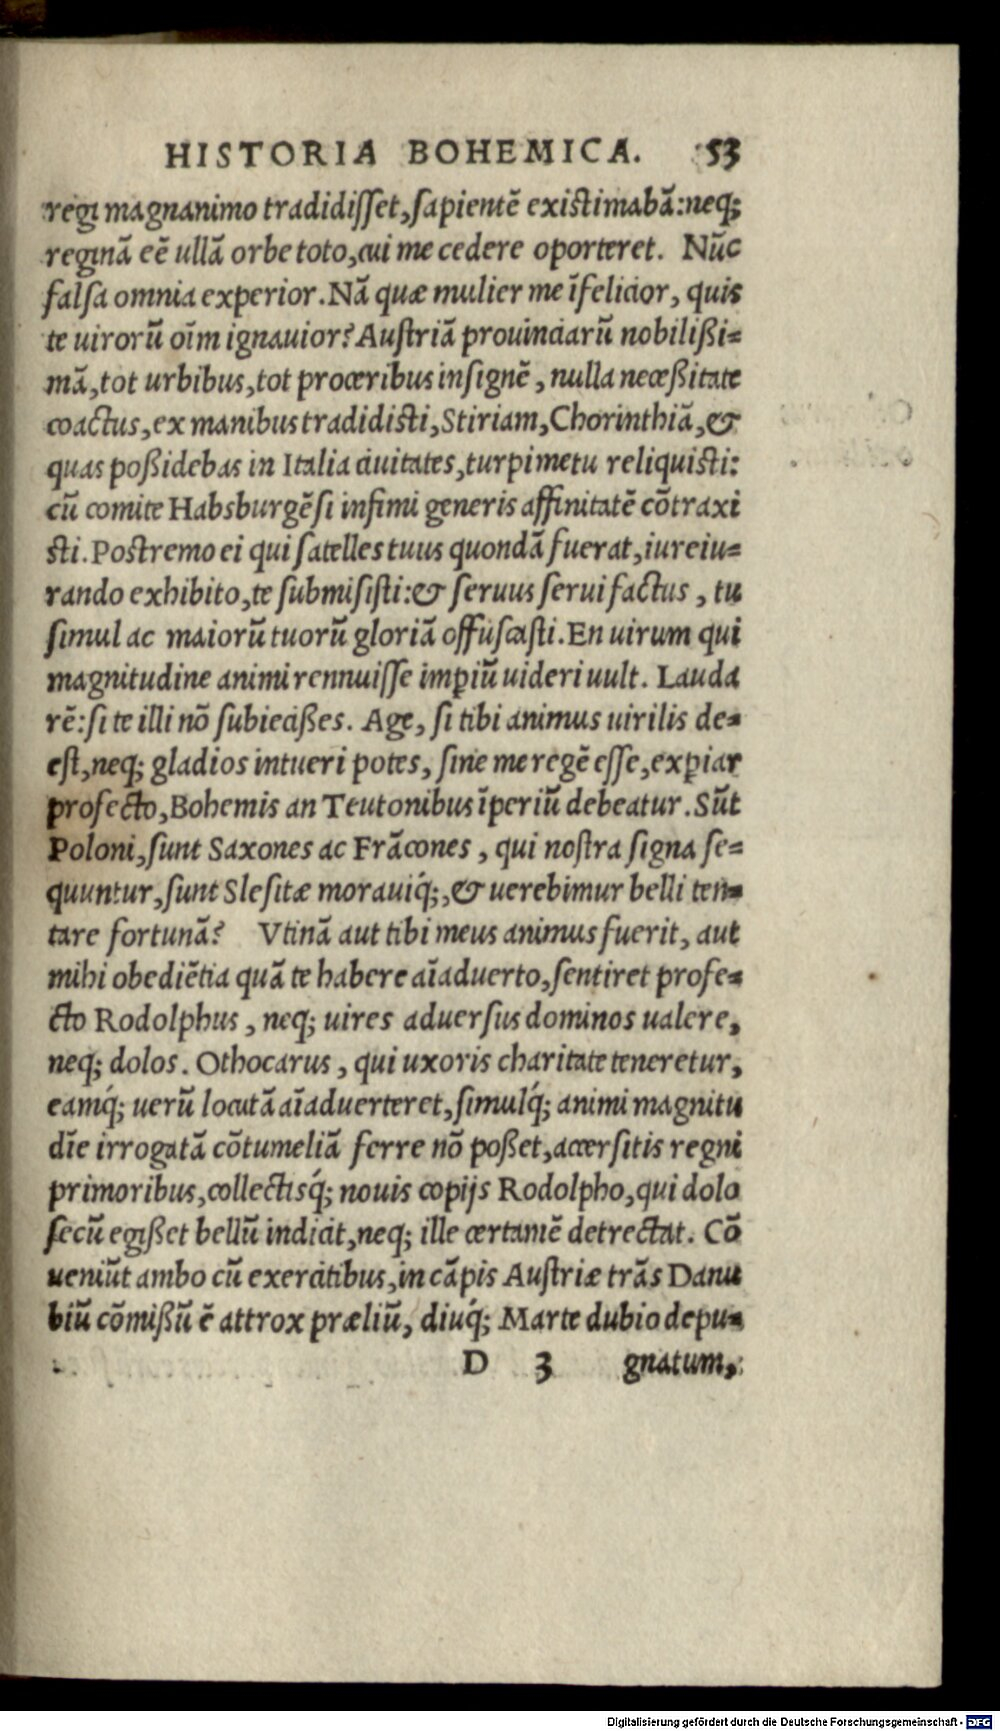 HISTORIA BOHEMICA. 53
regi magnanimo tradidisset, sapientē existimabā: neq;
reginā eē ullā orbe toto, cui me cedere oporteret. Nūc
falsa omnia experior. Nā quæ mulier me īfelicior, quis
te uirorū oīm ignauior? Austriā prouinciarū nobilißi=
mā, tot urbibus, tot proceribus insignē, nulla neceßitate
coactus, ex manibus tradidisti, Stiriam, Chorinthiā, &
quas poßidebas in Italia ciuitates, turpi metu reliquisti:
cū comite Habsburgēsi infimi generis affinitatē cōtraxi
sti. Postremo ei qui satelles tuus quondā fuerat, iureiu=
rando exhibito, te submisisti: & seruus serui factus, tu
simul ac maiorū tuorū gloriā offuscasti. En uirum qui
magnitudine animi rennuisse imꝑiū uideri uult. Lauda
rē: si te illi nō subiecißes. Age, si tibi animus uirilis de=
est, neq; gladios intueri potes, sine me regē esse, exꝑiar
profecto, Bohemis an Teutonibus īperiū debeatur. Sūt
Poloni, sunt Saxones ac Frācones, qui nostra signa se=
quuntur, sunt Slesitæ morauiq́;, & uerebimur belli ten=
tare fortunā? Vtinā aut tibi meus animus fuerit, aut
mihi obediētia quā te habere aīaduerto, sentiret profe=
cto Rodolphus, neq; uires aduersus dominos ualere,
neq; dolos. Othocarus, qui uxoris charitate teneretur,
eamq́; uerū locutā aīaduerteret, simulq́; animi magnitu
dīe irrogatā cōtumeliā ferre nō poßet, accersitis regni
primoribus, collectisq́; nouis copijs Rodolpho, qui dolo
secū egißet bellū indicit, neq; ille certamē detrectat. Cō
ueniūt ambo cū exercitibus, in cāpis Austriæ trās Danu
biū cōmißū ē attrox præliū, diuq́; Marte dubio depu=
D 3 gnatum,
Digitalisierung gefördert durch die Deutsche Forschungsgemeinschaft - DFG